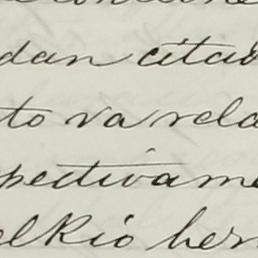 dan citad
to va rela
pectivame
el Rio her